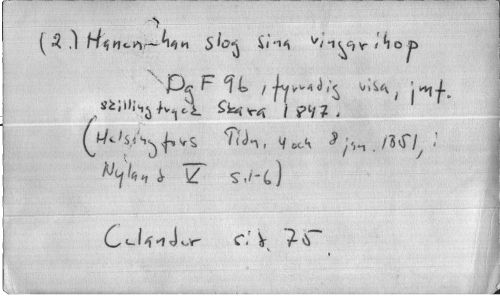 (2.) Hanen han slog sina vingar ihop
DgF 96, fyrradig visa, jmf.
skillingtryck Skara 1847.
(Helsingfors Tidn. 4 och 8 jan. 1851, i
Nyland V s.1-6)
Celander sid. 75.